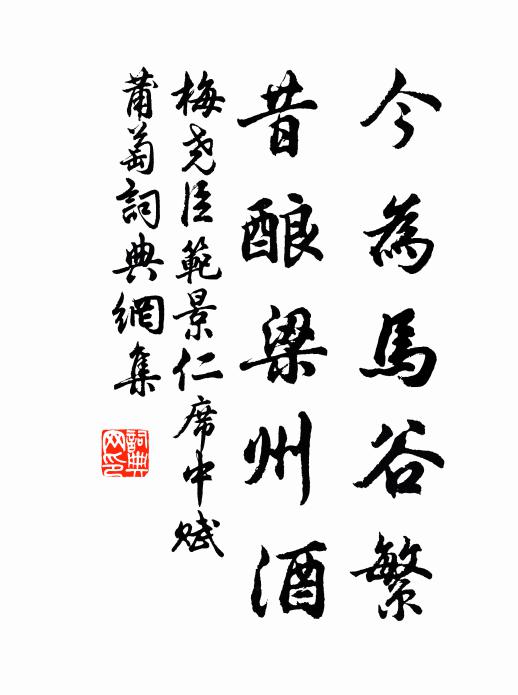 今為馬谷繁
昔酿梁州酒
梅尧臣範景仁席中賦
莆萄詞典網集
詞典网印